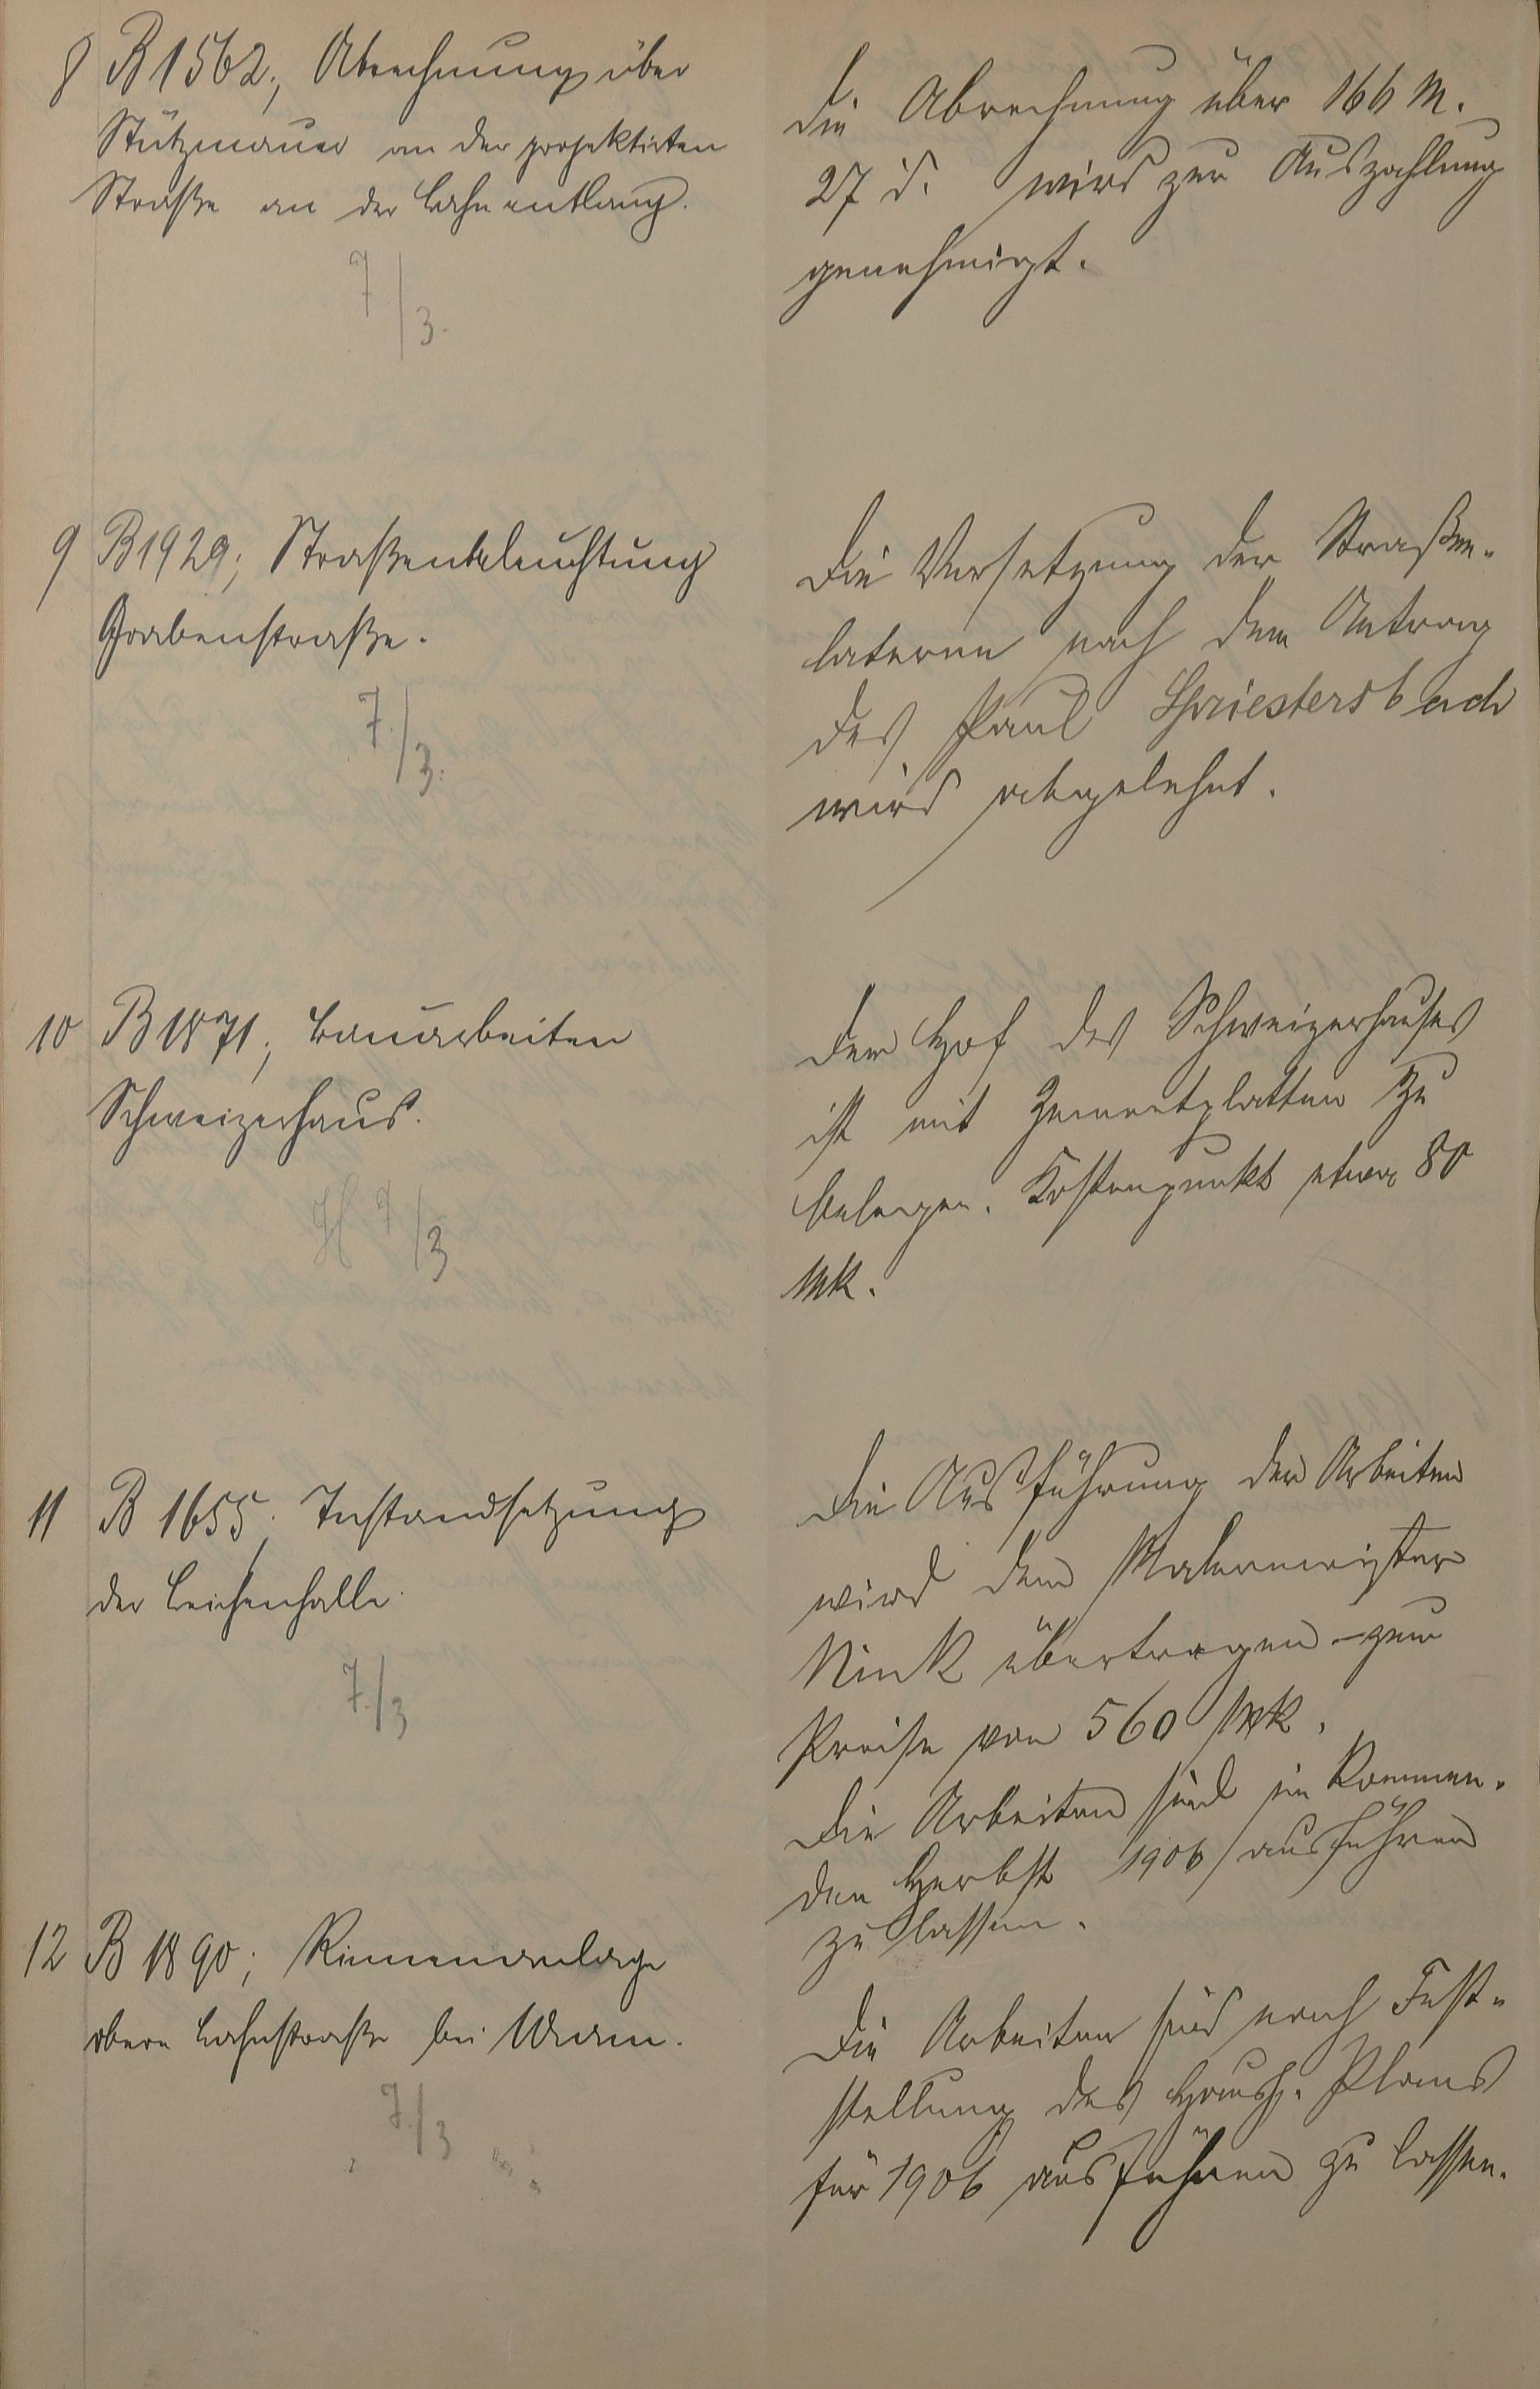 8 B 1562; Abrechnung über
Stützmauer an der projektirten
Straße an der Bahn entlang.
7/3.
Die Abrechnung über 166 M.
27 d. wird zur Auszahlung
genehmigt.
9 B 1929; Straßenbeleuchtung
Grabenstraße.
7/3.
Die Versetzung der Straßen-
laterne nach dem Antrag
des Paul Spriestersbach
wird abgelehnt.
10 B 1871; Bauarbeiten
Schweizerhaus.
H 7/3
Der Hof des Schweizerhauses
ist mit Zementplatten zu
belegen. Kostenpunkt etwa 80
Mk.
11 B 1655; Instandsetzung
der Leichenhalle.
7./3
Die Ausführung der Arbeiten
wird dem Malermeister
Nink übertragen zum
Preise von 560 Mk.
Die Arbeiten sind im kommen-
den Herbst 1906 ausführen
zu lassen.
12 B 1890; Rinnenanlage
obere Bahnstraße bei
7./3
Die Arbeiten sind nach Fest-
stellung des Haush. Plans
für 1906 ausführen zu lassen.